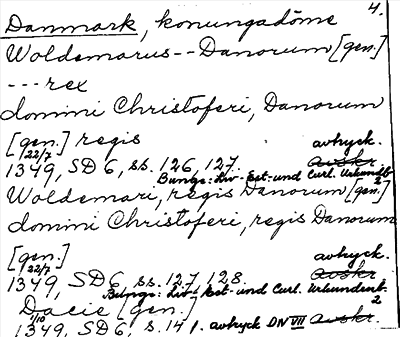 4.
Danmark, konungadöme
Woldemarus -- Danorum [gen.]
--- rex
domini Christoferi, Danorum
[gen.] regis avtryck.
22/7
1349, SD 6, ss. 126, 127. Avskr.
Bunge: Liv- Est- und Curl. Urkundenb. 2
Woldemari, regis Danorum [gen]
domini Christoferi, regis Danorum
[gen.] avtryck.
22/7
1349, SD 6, ss. 127, 128 Avskr.
Bunge: Liv- Est- und Curl. Urkundenb. 2
Dacie [gen.]
1/10
1349, SD 6, s. 141. avtryck DN VII Avskr.